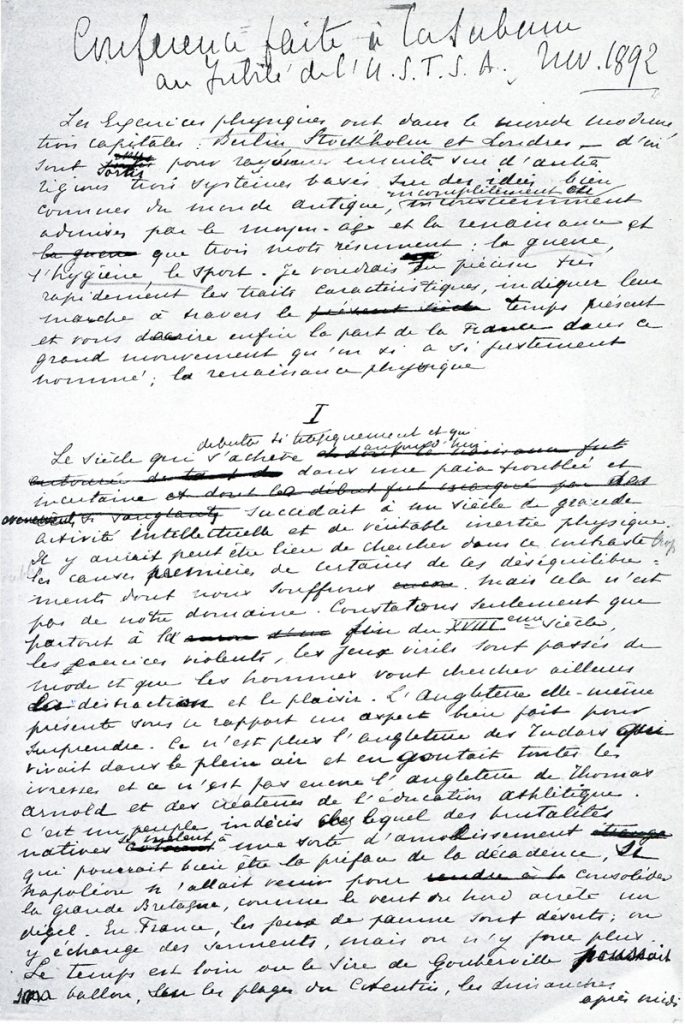 Conférence faite à la Sorbonne
au Jubilé de l'U.S.F.S.A. Nov. 1892
Les Exercices physiques ont dans le monde moderne
trois capitales : Berlin, Stockholm et Londres — d'où
sont sortis pour rayonner ensuite sur d'autres
régions trois systèmes basés sur des idées bien
connues du monde antique, incomplètement inconsciemment
admises par le moyen-âge et la renaissance et
la guerre que trois mots résument : la guerre,
l'hygiène, le sport. Je voudrais en préciser très
rapidement les traits caractéristiques, indiquer leur
marche à travers le présent siècle temps présent
et vous décrire enfin la part de la France dans ce
grand mouvement qu'on a si justement
nommé ; la renaissance physique
I
débuta si tragiquement et qui
Le siècle qui s'achève aujourd'hui
dans une paix troublée et
incertaine et dont le début fut marqué par des
évènements si sanglants succédait à un siècle de grande
activité intellectuelle et de véritable inertie physique.
Il y aurait peut être lieu de chercher dans ce contraste trop
les causes premières de certains de ces déséquilibre-
ments dont nous souffrons encore. mais cela n'est
pas de notre domaine. Constatons seulement que
partout à la fin du XVIIIème siècle,
les exercices violents, les jeux virils sont passés de
mode et que les hommes vont chercher ailleurs
la distraction et le plaisir. L'Angleterre elle-même
présente sous ce rapport un aspect bien fait pour
surprendre. Ce n'est plus l'angleterre des Tudors qui
vivait dans le plein air et en goûtait toutes les
ivresses et ce n'est pas encore l'angleterre de Thomas
Arnold et des créateurs de l'éducation athlétique.
C'est un peuple indécis chez lequel des brutalités
natives se mêlent à une sorte d'amollissement étrange
qui pourrait bien être la préface de la décadence, si
Napoléon n'allait venir pour rendre à la consolider
la Grande Bretagne, comme le vent du nord arrête un
dégel. En France, les jeux de paume sont déserts ; on
y échange des serments, mais on n'y joue plus
Le temps est loin où le Sire de Gouberville poussait
son ballon, sur les plages du Cotentin, les dimanches
après midi